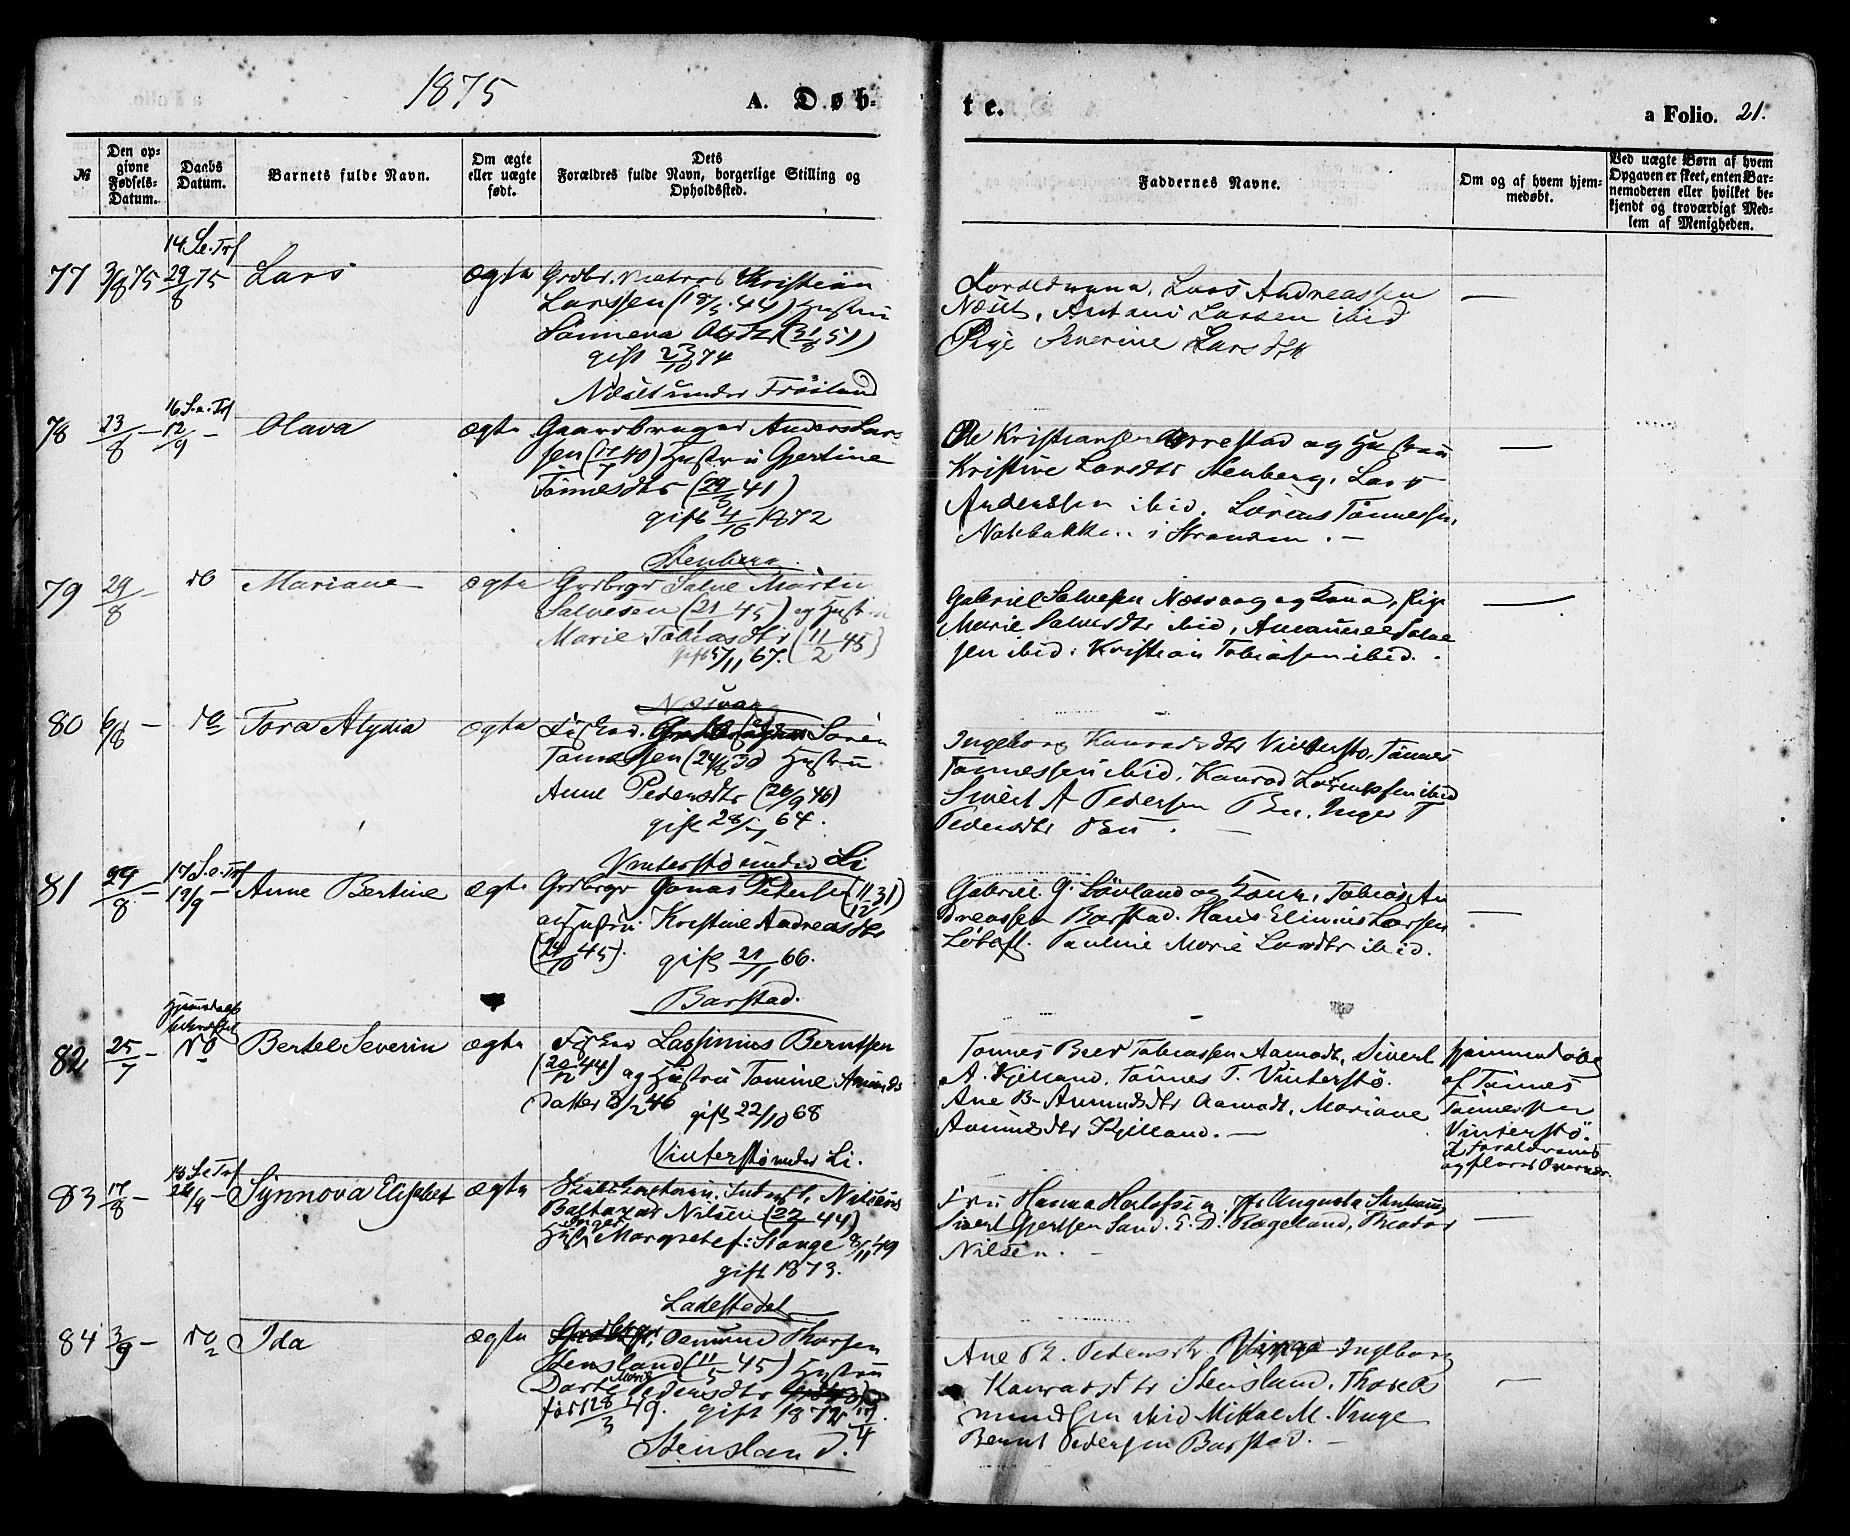 1875
A. Døb-
te.
a Folio. 21.
№
Den op-
givne
Fødsels-
Datum.
Daabs
Datum.
Barnets fulde Navn.
Om ægte
eller uægte
født.
Dets
Forældres fulde Navn, borgerlige Stilling og
Opholdssted.
Faddernes Navne.
Om og af hvem hjem-
medøbt.
Ved uægte Børn af hvem
Opgaven er skeet, enten Bar-
nemoderen eller hvilket be-
kjendt og troværdigt Med-
lem af Menigheden.
14 S.e.Trf
77 3/8 75 29/8 75 Lars ægte Kristian
Larssen (18/5 44) Hustru
Olsdtr (31/8 51)
gift 23/10 74
Næset under Frøiland
Forældrene, Lars Andreassen
Næset, Larsen ibid
Pige Larsdtr —
16 S.e.Trf
78 23/8 — 12/9 — Olava ægte Gaardbruger Anders Lars
sen (17/7 40) Hustru Gjertine
Tønnesdtr (29/3 41)
gift 1872
Stenberg
Ole Kristiansen Ørrestad og Hustru
Kristine Larsdtr Stenberg, Lars
Anderssen ibid. Tønnessen,
i Stranden. —
79 29/8 — do Mariane ægte Grdbrgr Salve Martin
Salvesen (21/1 45) og Hustru
Marie Tobiasdtr (11/2 45)
gift 5/11 67.
Næsvaag
Gabriel Salvesen Næsvaag og Kone, Pige
Marie Salvesdtr ibid, Amanuel Salve
sen ibid. Kristian Tobiassen ibid. —
80 6/8 — do Tora Alydia ægte Fisker Sørén
Tønnessen (24/8 30) Hustru
Anne Pedersdtr (26/9 46)
gift 28/7 64.
Vinterstø under Li
Ingeborg Konradsdtr Vinterstø, Tønnes
Tønnessen ibid, Konrad ibid
Sivert A Pedersen Inger T
Pedersdtr
17 S.e.Trf
81 29/8 — 19/9 — Anne Bertine ægte Grdbrgr Jonas Petersen (11/12 31)
og Hustru Kristine Andreasdtr
(24/10 45). gift 21/11 66.
Barstad.
Gabriel G. Løvland og Kone, Tobias An
dreassen Barstad. Hans Larsen
Pauline Marie Larsdtr ibid. —
Hjemmedaab
bekræftet
82 25/7 — do Bertel Severin ægte Fisker Lassinius Berntsen
(20/12 44) og Hustru Tomine Amunds
datter 8/2 46 gift 22/10 68
Vinterstø under Li.
Tønnes Beer Tobiassen Aamodt, Sivert
A. Kjelland. Tønnes T. Vinterstø.
Ane B. Amundsdtr Aamodt, Mariane
Aamundsdtr Kjelland. —
hjemmedøbt
af Tønnes
Tønnessen
Vinterstø.
i Forældrenes
og fleres Overvær.
18 S.e.Trf
83 17/8 — 26/9 — Synnova Elisabet ægte
Baltazar Nilsen (27/2 44)
Inger
Hust. Margrete f: Stange 8/11 49
gift 1873.
Ladestedet
Fru Hanna Augusta
Sivert Gjertsen Sand. E. D. Rogeland, Theodor
Nilsen. —
84 3/9 — do Ida ægte Osmund Thorsen
Stensland (11/5 45) Hustru
Marie
Dorte Pedersdtr
født 28/3 49. gift 1872 17/4
Stensland.
Ane Pedersdtr Ingeborg
Konradsdtr Stensland, Thore As
mundsen ibid Mikkel M. Vinge
Bernt Pedersen Barstad. —